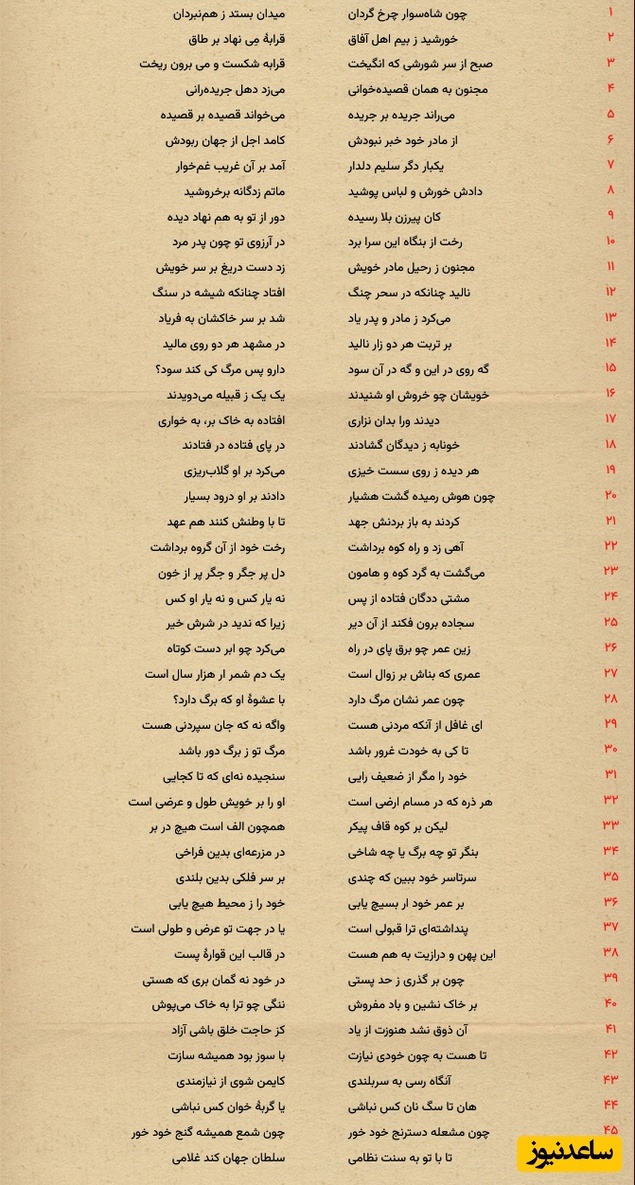 ۱ چون شاه‌سوار چرخ گردان میدان بستد ز هم‌نبردان
۲ خورشید ز بیم اهل آفاق قرابهٔ می نهاد بر طاق
۳ صبح از سر شورشی که انگیخت قرابه شکست و می برون ریخت
۴ مجنون به همان قصیده‌خوانی می‌زد دهل جریده‌رانی
۵ می‌راند جریده بر جریده می‌خواند قصیده بر قصیده
۶ از مادر خود خبر نبودش کامد اجل از جهان ربودش
۷ یکبار دگر سلیم دلدار آمد بر آن غریب غم‌خوار
۸ دادش خورش و لباس پوشید ماتم زدگانه برخروشید
۹ کان پیرزن بلا رسیده دور از تو به هم نهاد دیده
۱۰ رخت از بنگاه این سرا برد در آرزوی تو چون پدر مرد
۱۱ مجنون ز رحیل مادر خویش زد دست دریغ بر سر خویش
۱۲ نالید چنانکه در سحر چنگ افتاد چنانکه شیشه در سنگ
۱۳ می‌کرد ز مادر و پدر یاد شد بر سر خاکشان به فریاد
۱۴ بر تربت هر دو زار نالید در مشهد هر دو روی مالید
۱۵ گه روی در این و گه در آن سود دارو پس مرگ کی کند سود؟
۱۶ خویشان چو خروش او شنیدند یک یک ز قبیله می‌دویدند
۱۷ دیدند ورا بدان نزاری افتاده به خاک بر، به خواری
۱۸ خونابه ز دیدگان گشادند در پای فتاده در فتادند
۱۹ هر دیده ز روی سست خیزی می‌کرد بر او گلاب‌ریزی
۲۰ چون هوش رمیده گشت هشیار دادند بر او درود بسیار
۲۱ کردند به باز بردنش جهد تا با وطنش کنند هم عهد
۲۲ آهی زد و راه کوه برداشت رخت خود از آن گروه برداشت
۲۳ می‌گشت به گرد کوه و هامون دل پر جگر و جگر پر از خون
۲۴ مشتی ددگان فتاده از پس نه یار کس و نه یار او کس
۲۵ سجاده برون فکند از آن دیر زیرا که ندید در شرش خیر
۲۶ زین عمر چو برق پای در راه می‌کرد چو ابر دست کوتاه
۲۷ عمری که بناش بر زوال است یک دم شمر ار هزار سال است
۲۸ چون عمر نشان مرگ دارد با عشوهٔ او که برگ دارد؟
۲۹ ای غافل از آنکه مردنی هست واگه نه که جان سپردنی هست
۳۰ تا کی به خودت غرور باشد مرگ تو ز برگ دور باشد
۳۱ خود را مگر از ضعیف رایی سنجیده نه‌ای که تا کجایی
۳۲ هر ذره که در مسام ارضی است او را بر خویش طول و عرضی است
۳۳ لیکن بر کوه قاف پیکر همچون الف است هیچ در بر
۳۴ بنگر تو چه برگ یا چه شاخی در مزرعه‌ای بدین فراخی
۳۵ سرتاسر خود ببین که چندی بر سر فلکی بدین بلندی
۳۶ بر عمر خود ار بسیچ یابی خود را ز محیط هیچ یابی
۳۷ پنداشته‌ای ترا قبولی است یا در جهت تو عرض و طولی است
۳۸ این پهن و درازیت به هم هست در قالب این قوارهٔ پست
۳۹ چون بر گذری ز حد پستی در خود نه گمان بری که هستی
۴۰ بر خاک نشین و باد مفروش ننگی چو ترا به خاک می‌پوش
۴۱ آن ذوق نشد هنوزت از یاد کز حاجت خلق باشی آزاد
۴۲ تا هست به چون خودی نیازت با سوز بود همیشه سازت
۴۳ آنگاه رسی به سربلندی کایمن شوی از نیازمندی
۴۴ هان تا سگ نان کس نباشی یا گربهٔ خوان کس نباشی
۴۵ چون مشعله دسترنج خود خور چون شمع همیشه گنج خود خور
تا با تو به سنت نظامی سلطان جهان کند غلامی
ساعدنیوز